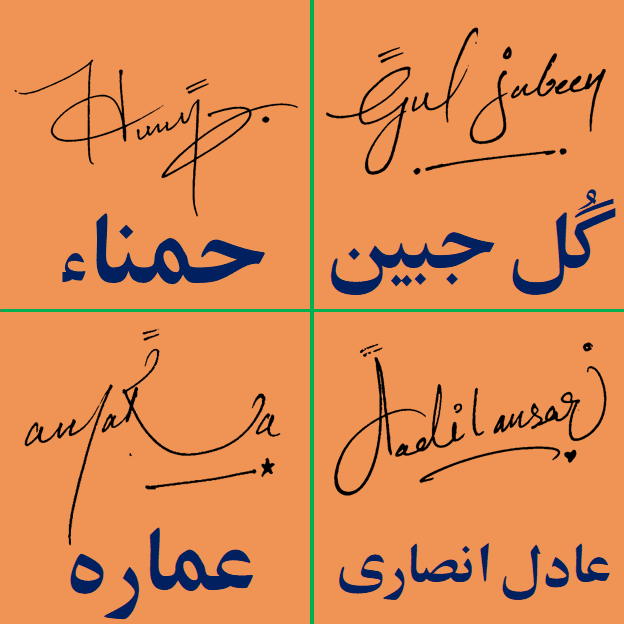 حمناء
Gul jabeen
گُل جبین
عماره
Aadil ansari
عادل انصاری